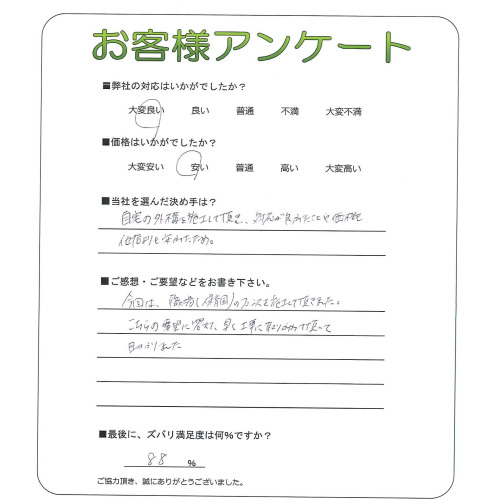 お客様アンケート
■弊社の対応はいかがでしたか?
大変良い 良い 普通 不満 大変不満
■価格はいかがでしたか?
大変安い 安い 普通 高い 大変高い
■当社を選んだ決め手は?
自宅の外構を施工して頂き、対応が良かったことや価格も
■ご感想・ご要望などをお書き下さい。
今回は、職場(保育園)のフェンスを施工して頂きました。
こちらの要望に答え、早く工事に取りかかって頂いて
■最後に、ズバリ満足度は何%ですか?
88 %
ご協力頂き、誠にありがとうございました。